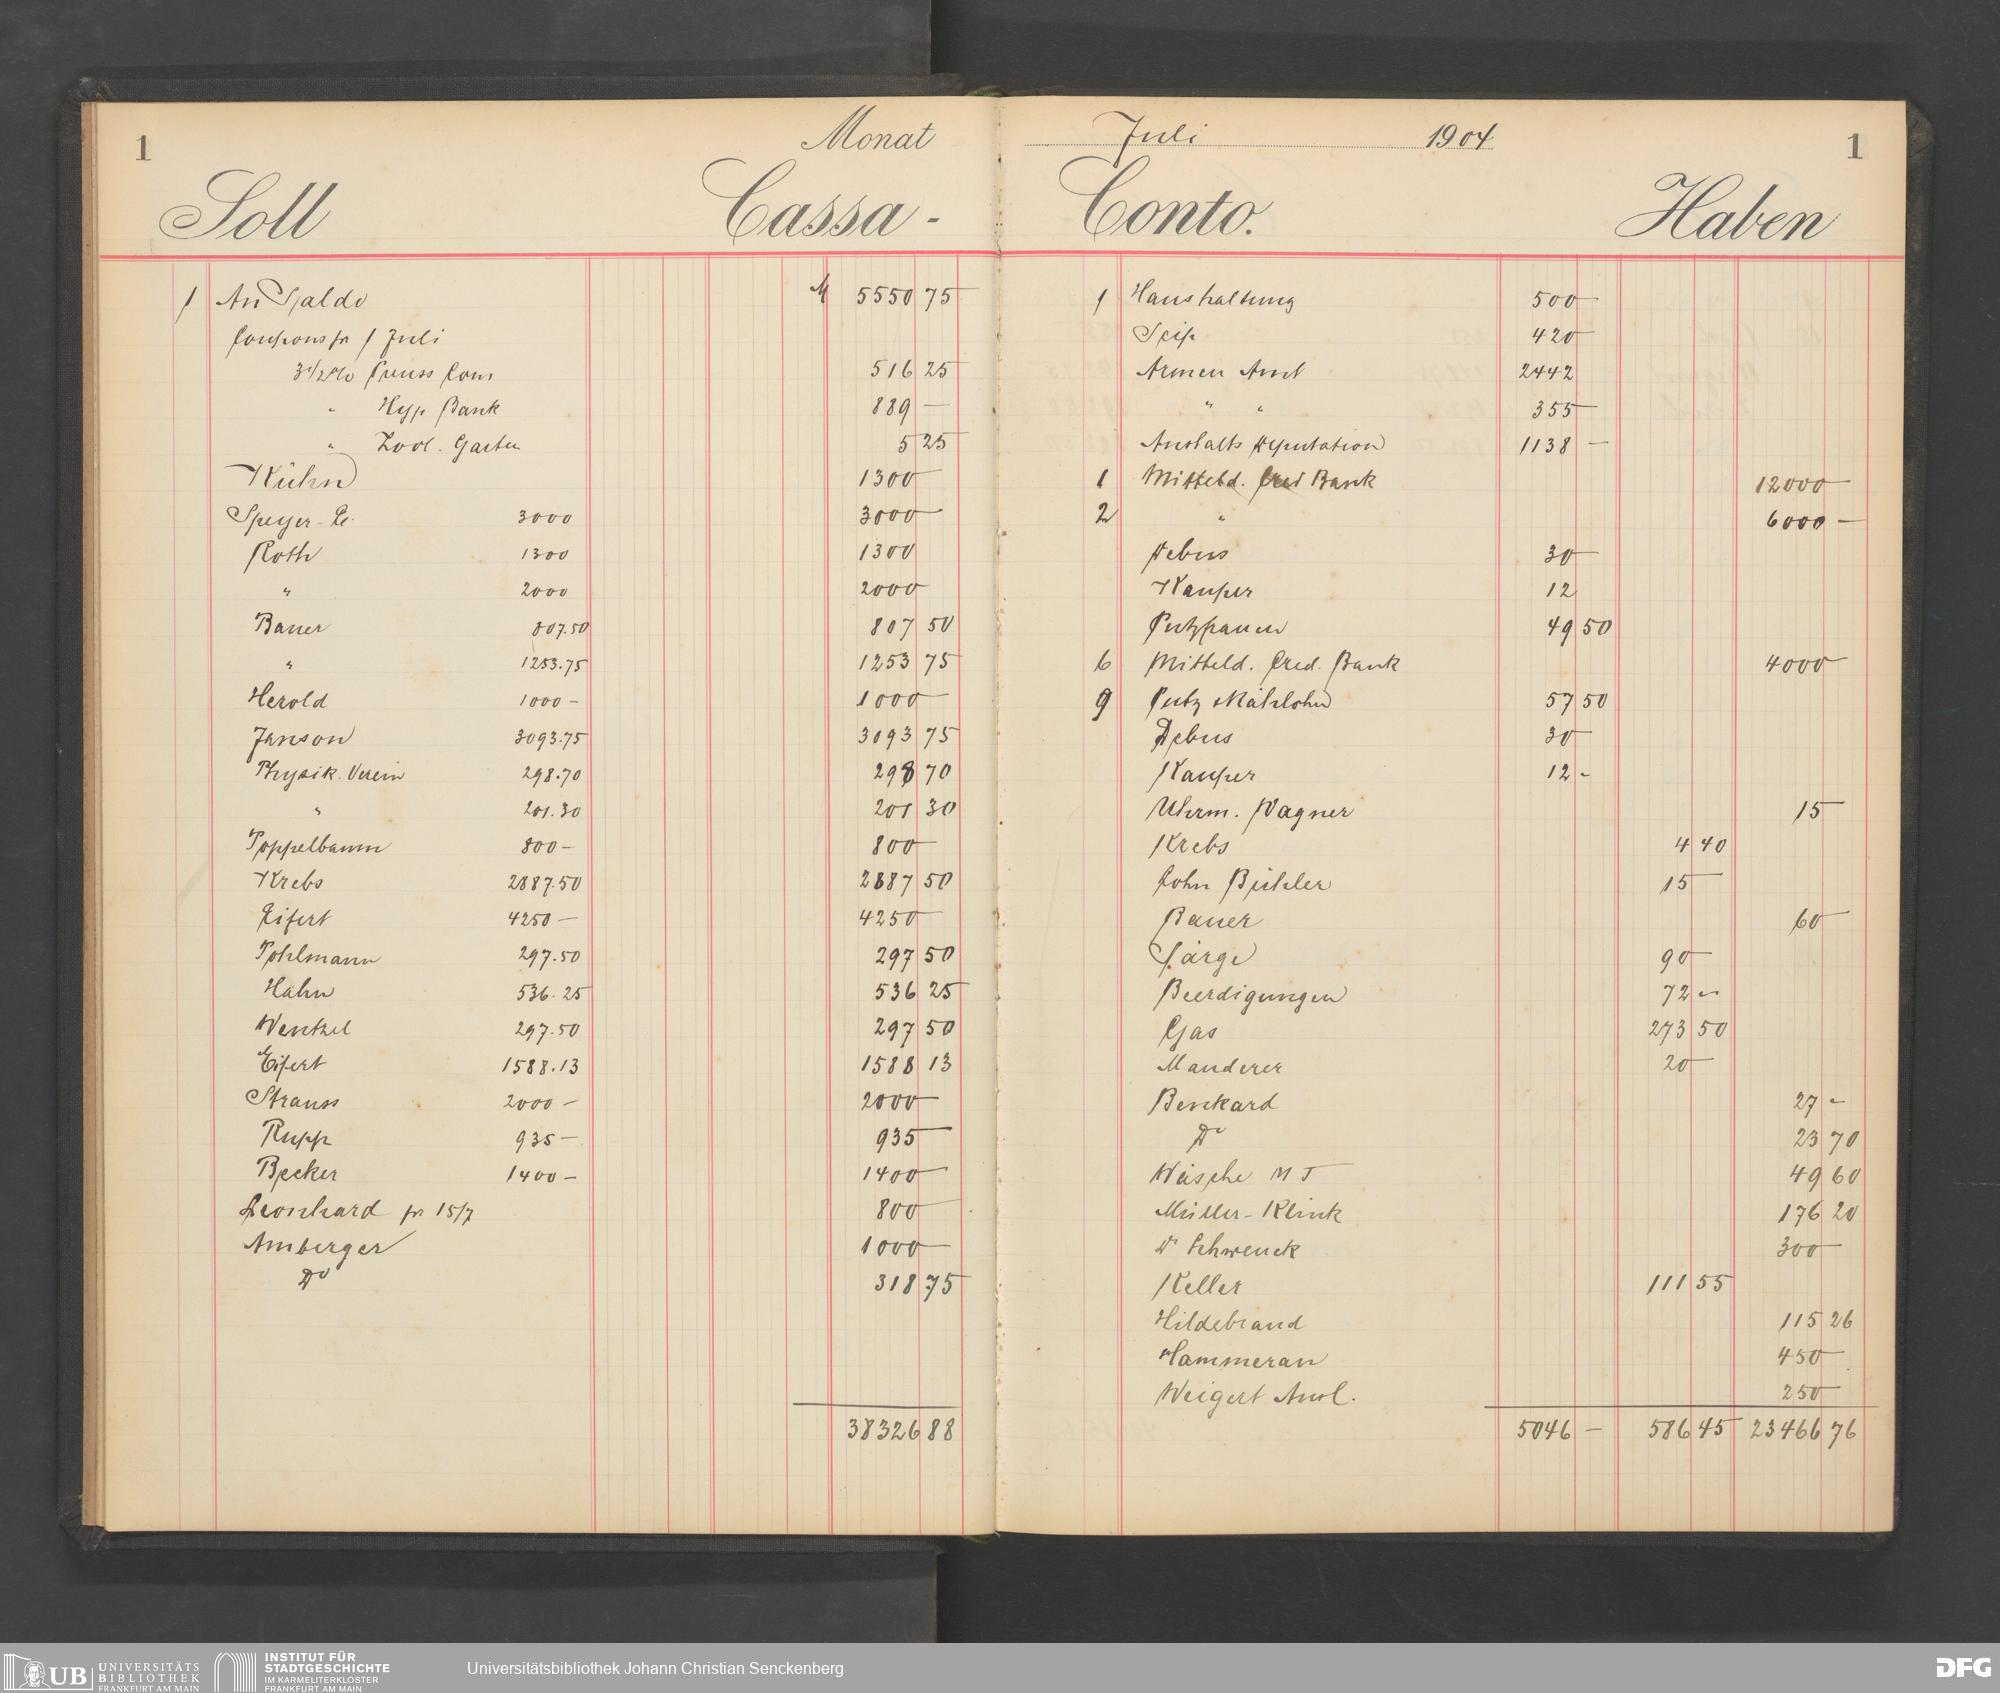 1
Monat
Soll
Cassa-
1 An Saldo M 5550 75
Coupons pr 1 Juli
3 1/2% Preuss Cons 516 25
" Hyp Bank 889 —
" Zool. Garten 5 25
Kühn 1300 —
Speyer-E. 3000 3000 —
Roth 1300 1300
" 2000 2000 —
Bauer 807.50 807 50
" 1253.75 1253 75
Herold 1000 — 1000 —
Janson 3093.75 3093 75
Physik. Verein 298.70 298 70
" 201.30 201 30
Poppelbaum 800 — 800 —
Krebs 2887.50 2887 50
Eifert 4250 — 4250 —
Pohlmann 297.50 297 50
Hahn 536.25 536 25
Wentzel 297.50 297 50
Eifert 1588.13 1588 13
Strauss 2000 — 2000 —
Rupp 935 — 935 —
Becker 1400 — 1400 —
Leonhard pr 15/7 800 —
Amberger 1000 —
Do 318 75
38326 88
Juli 1904
1
Conto.
Haben
1 Haushaltung 500 —
Seip 420 —
Armen Amt 2442
" " 355 —
Anstalts Deputation 1138 —
1 Mitteld. Cred Bank 12000 —
2 " 6000 —
Debus 30 —
Kauper 12
Putzfrauen 49 50
6 Mitteld. Cred. Bank 4000 —
9 Putz Nählohn 57 50
Debus 30 —
Kauper 12 -
Uhrm. Wagner 15 —
Krebs 4 40
Lohn Bühler 15 —
Bauer 60 —
Särge 90 —
Beerdigungen 72 —
Gas 273 50
Manderer 20 —
Benkard 27 -
Do 23 70
Wäsche M J 49 60
Müller-Klink 176 20
Dr Schwenck 300 —
Keller 111 55
Hildebrand 115 26
Hammeran 450 —
Weigert Ausl. 250 —
5046 — 586 45 23466 76
UB UNIVERSITÄTS
BIBLIOTHEK
FRANKFURT AM MAIN
INSTITUT FÜR
STADTGESCHICHTE
IM KARMELITERKLOSTER
FRANKFURT AM MAIN
Universitätsbibliothek Johann Christian Senckenberg
DFG